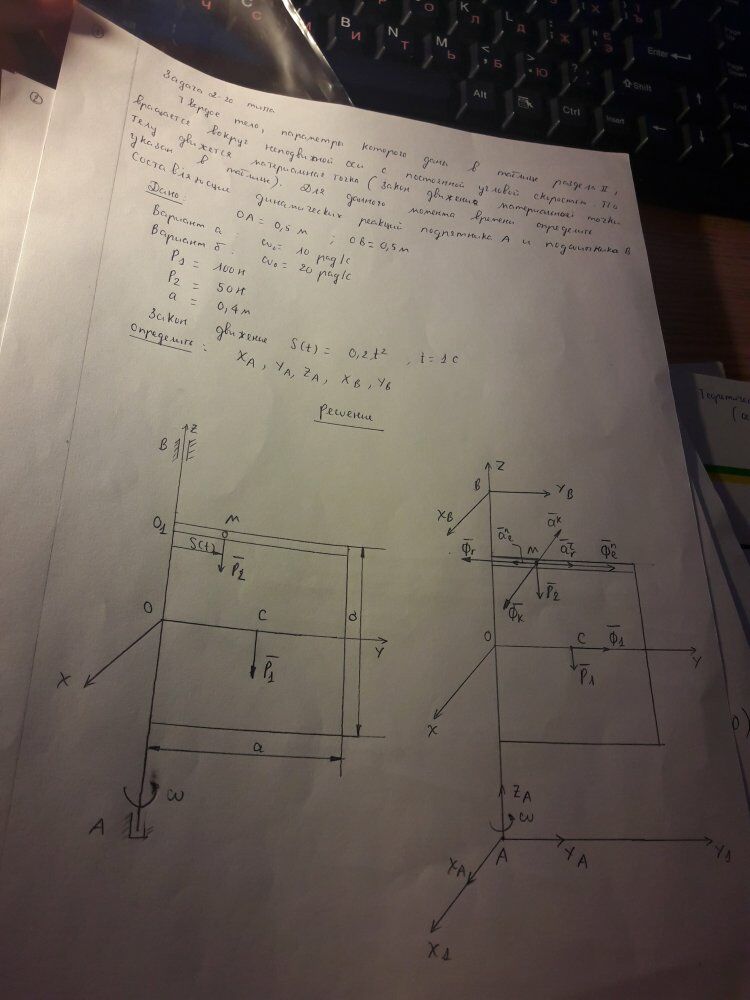 Задача 2-го типа
Твердое тело, параметры которого даны в таблице раздела II,
вращается вокруг неподвижной оси с постоянной угловой скоростью. По
телу движется материальная точка (закон движения материальной точки
указан в таблице). Для данного момента времени определите
составляющие динамических реакций подпятника А и подшипника В
Дано: OA = 0,5 м ; OB = 0,5 м
Вариант а: ω₀ = 10 рад/с
Вариант б: ω₀ = 20 рад/с
P1 = 100н
P2 = 50н
a = 0,4 м
Закон движения S(t) = 0,2t² , t = 1 с
Определить: XA, YA, ZA, XB, YB
Решение
Z
B
O1
M
S(t)
P2
O
C
a
Y
X
P1
a
ω
A
Z
B
YB
XB
aᵏ
Φr
aeⁿ
M
arᵗ
Φeⁿ
P2
Φk
O
C
Φ1
Y
P1
X
ZA
ω
XA
A
YA
Y1
X1
Enter
Shift
Alt
Ctrl
Insert